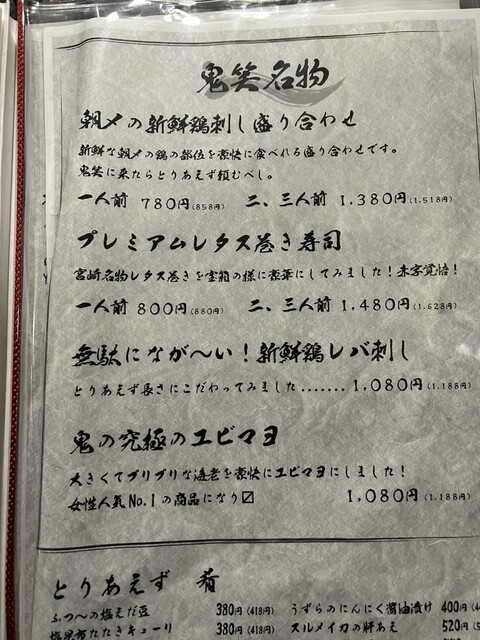 鬼笑名物
朝〆の新鮮鶏刺し盛り合わせ
新鮮な朝〆の鶏の部位を豪快に食べれる盛り合わせです。
鬼笑に来たらとりあえず頼むべし。
一人前 780円(858円) 二、三人前 1,380円(1.518円)
プレミアムレタス巻き寿司
宮崎名物レタス巻きを宝箱の様に豪華にしてみました！赤字覚悟！
一人前 800円(880円) 二、三人前 1,480円(1.628円)
無駄になが〜い！新鮮鶏レバ刺し
とりあえず長さにこだわってみました.......1,080円(1.188円)
鬼の究極のエビマヨ
大きくてプリプリな海老を豪快にエビマヨにしました！
女性人気No.1の商品になり〼 1,080円(1.188円)
とりあえず 肴
ふつ〜の塩えだ豆 380円(418円) うずらのにんにく醤油漬け 400円
塩昆布たたきキューリ 380円(418円) スルメイカの肝あえ 520円